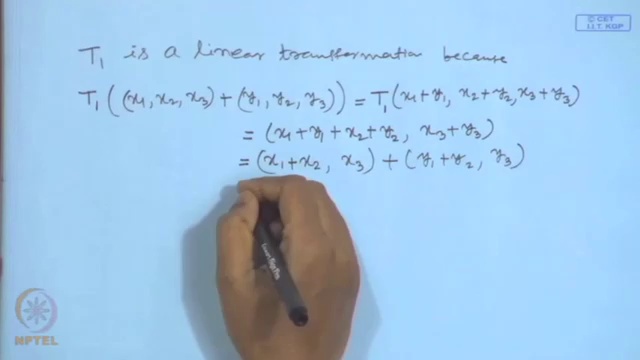 © CET
I.I.T. KGP
T₁ is a linear transformation because
T₁((x₁, x₂, x₃) + (y₁, y₂, y₃)) = T₁(x₁+y₁, x₂+y₂, x₃+y₃)
= (x₁+y₁+x₂+y₂, x₃+y₃)
= (x₁+x₂, x₃) + (y₁+y₂, y₃)
NPTEL